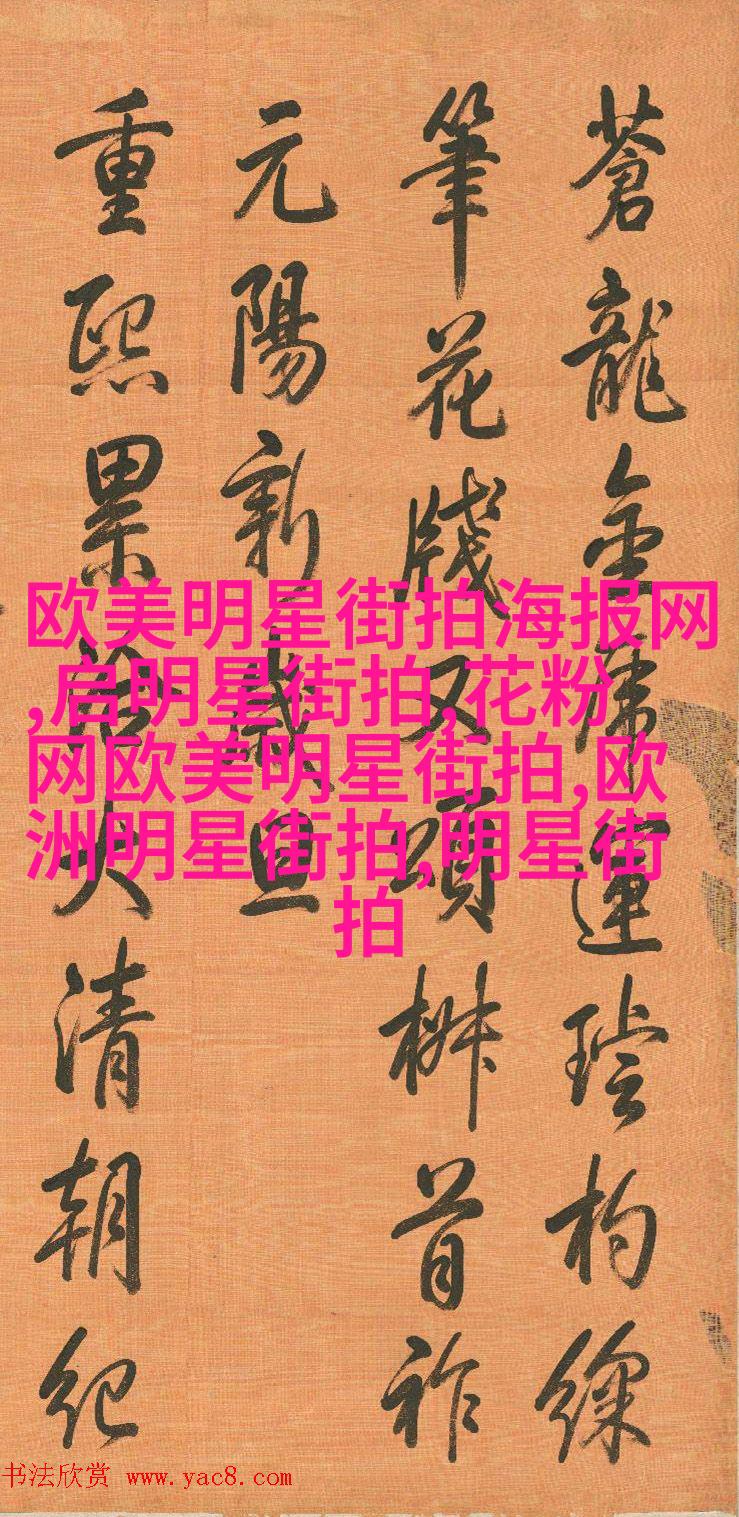 蒼龍金虎運璿杓綵
筆花牋又頌椒首祚
元陽新歲旦
重熙累洽大清朝紀
欧美明星街拍海报网
,启明星街拍,花粉
网欧美明星街拍,欧
洲明星街拍,明星街
拍
书法欣赏 www.yac8.com